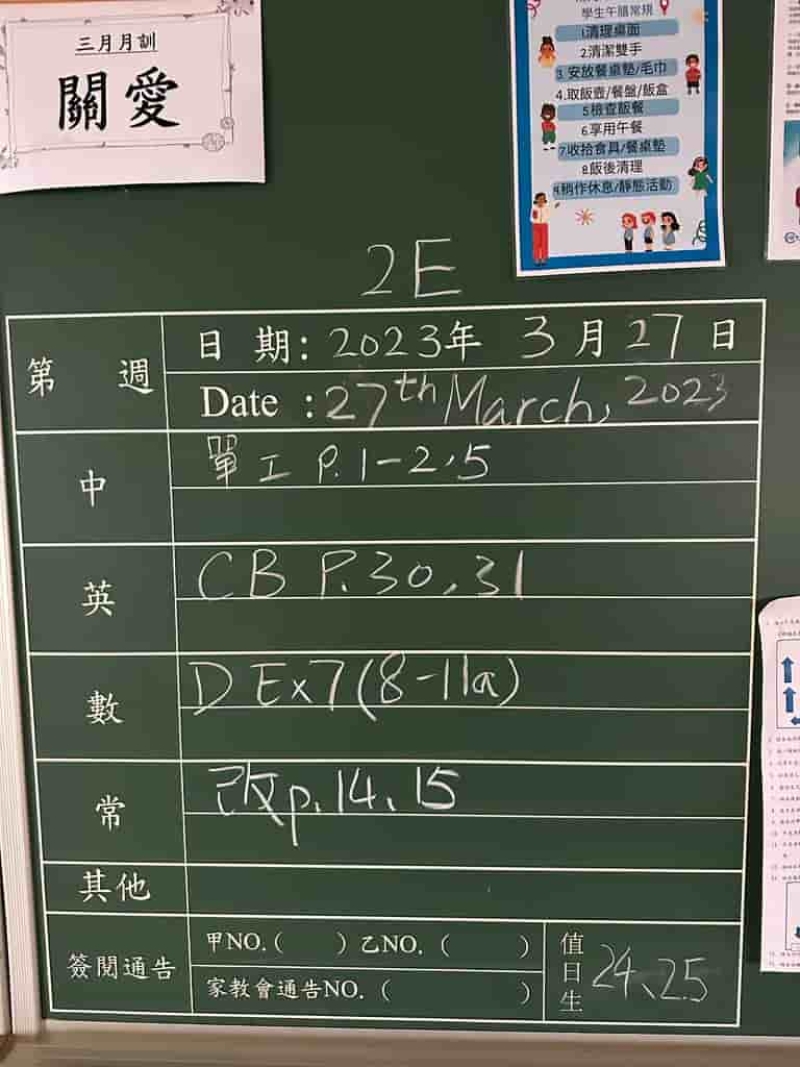 三月月訓
關愛
學生午膳常規
1清理桌面
2清潔雙手
3.安放餐桌墊/毛巾
4.取飯壺/餐盤/飯盒
5檢查飯餐
6享用午餐
7收拾食具/餐桌墊
8飯後清理
9稍作休息/靜態活動
2E
第 週
日 期: 2023年 3月27日
Date : 27th March, 2023
中
單工 P.1-2,5
英
CB P.30,31
數
D Ex7(8-11a)
常
改p.14、15
其他
簽閱通告
甲NO.( ) 乙NO.( )
家教會通告NO.( )
值日生
24、25